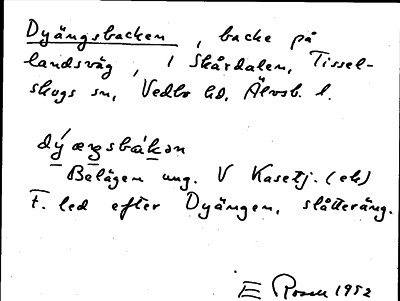 Dyängsbacken, backe på
landsväg, i Skårdalen, Tissel-
skogs sn, Vedbo hd, Älvsb. l.
dý ængsbákən
Belägen ung. V Kasetj. (ek)
F. led efter Dyängen, slåtteräng.
E Rosell 1952